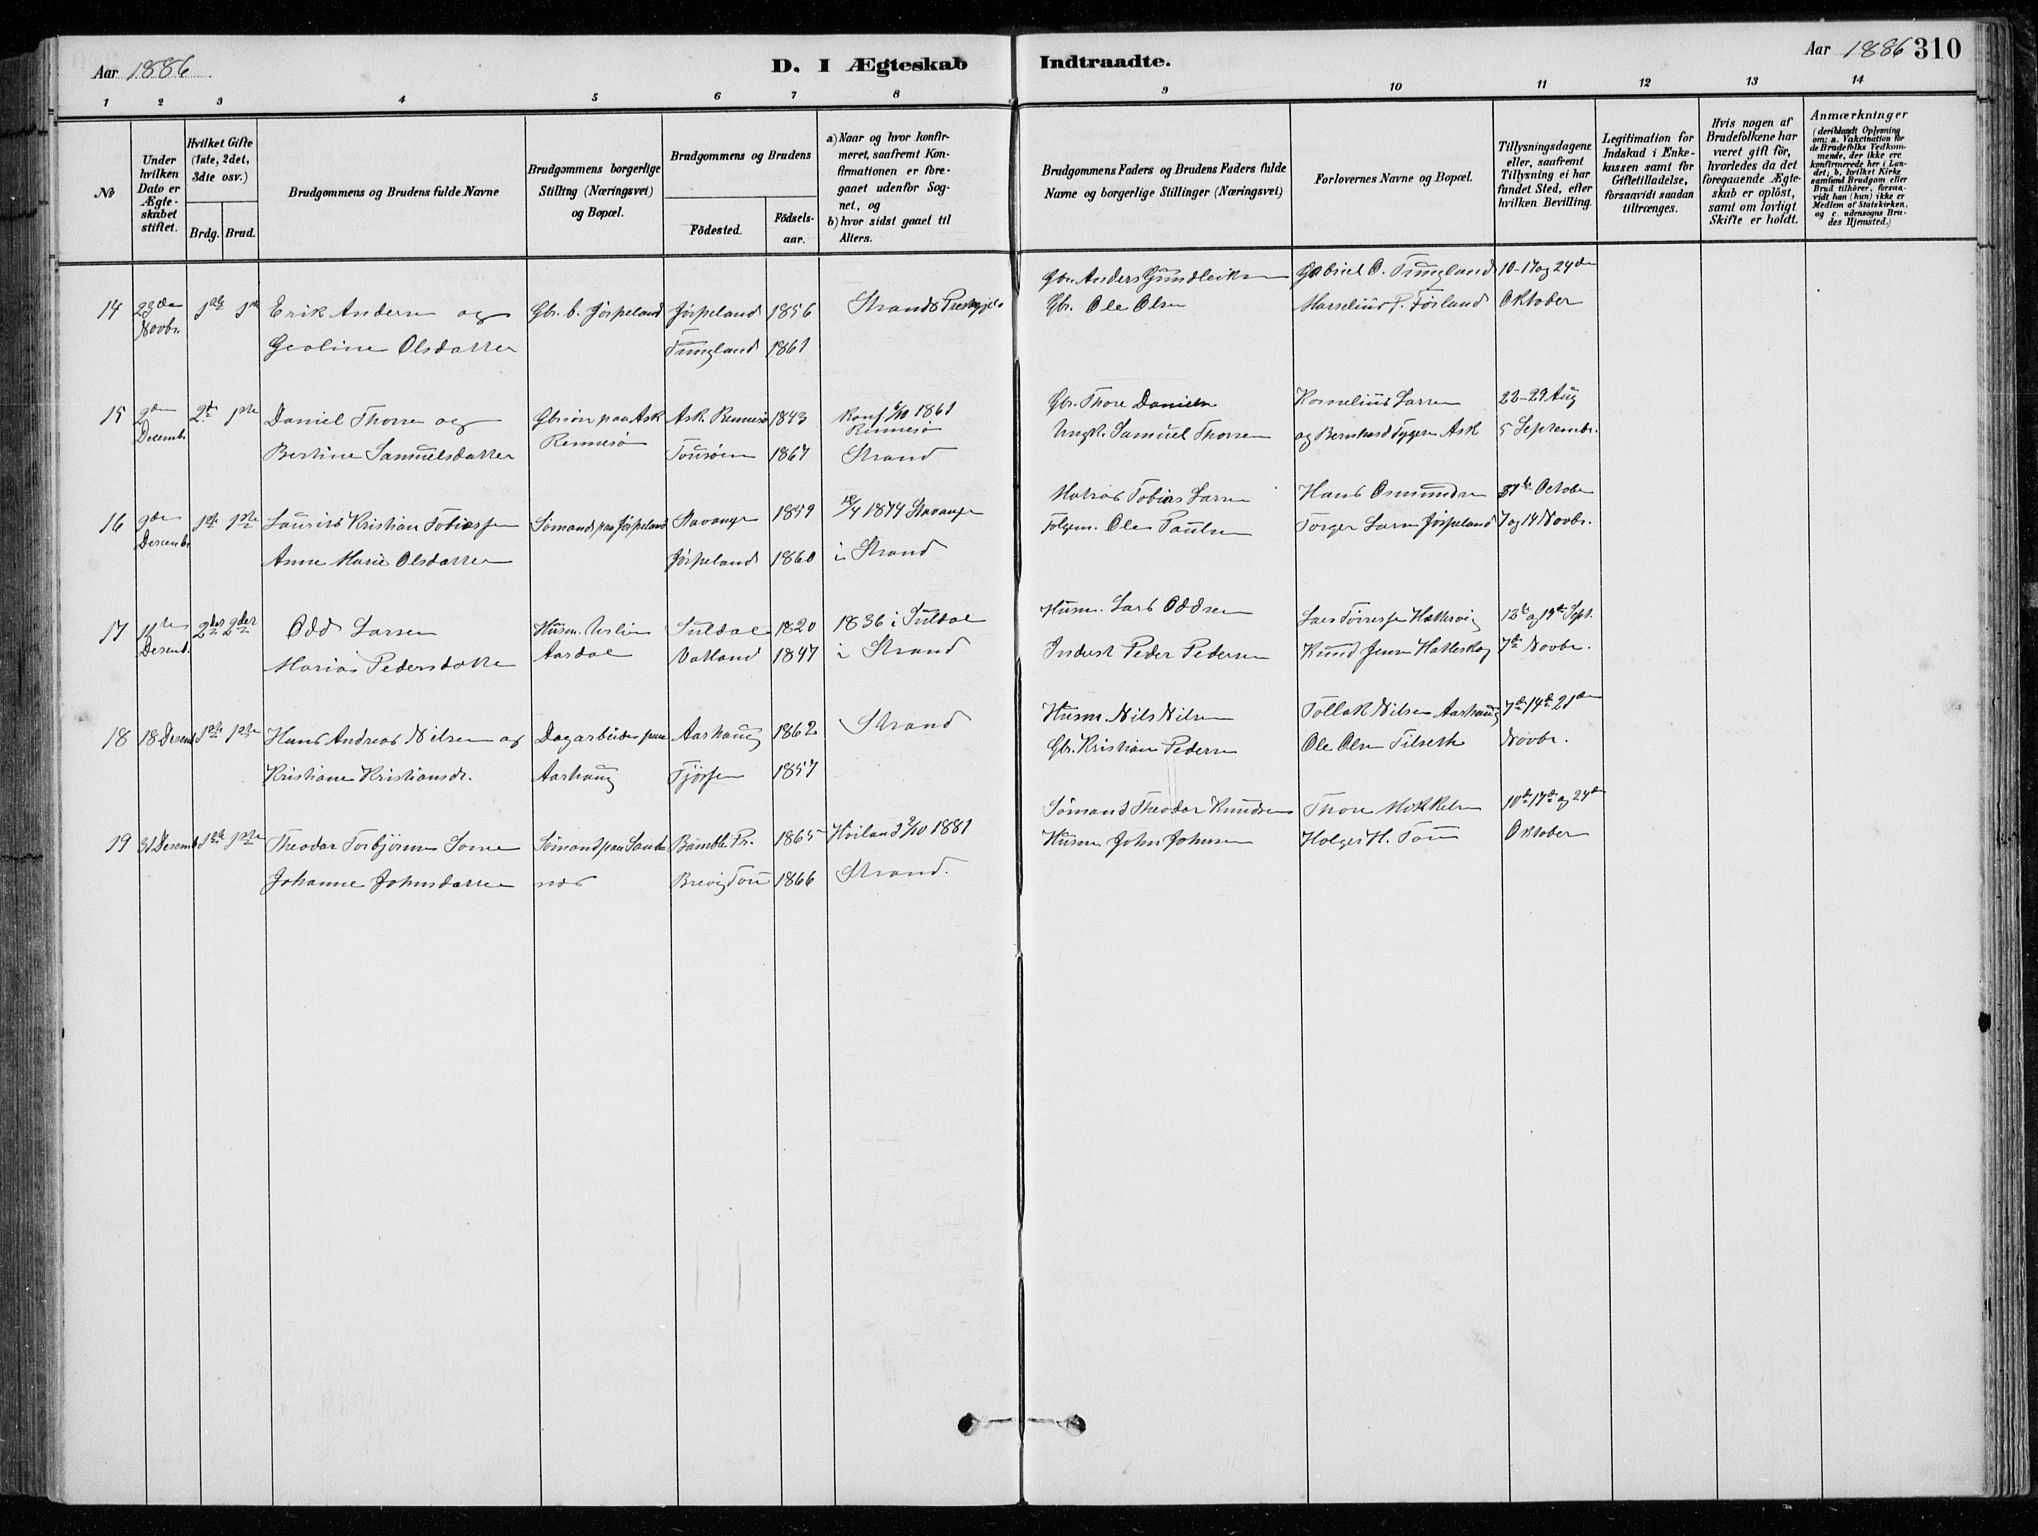 Aar 1886.
D. I Ægteskab
Indtraadte.
Aar 1886
310
1 2 3 4 5 6 7 8 9 10 11 12 13 14
№
Under hvilken Dato er Ægteskabet stiftet.
Hvilket Gifte (1ste, 2det, 3die osv.)
Brdg. Brud.
Brudgommens og Brudens fulde Navne
Brudgommens borgerlige Stilling (Næringsvei) og Bopæl.
Brudgommens og Brudens
Födested.
Födsels-aar.
a) Naar og hvor konfirmeret, saafremt Konfirmationen er foregaaet udenfor Sognet, og
b) hvor sidst gaaet til Alters.
Brudgommens Faders og Brudens Faders fulde Navne og borgerlige Stillinger (Næringsvei)
Forlovernes Navne og Bopæl.
Tillysningsdagene eller, saafremt Tillysning ei har fundet Sted, efter hvilken Bevilling.
Legitimation for Indskud i Enkekassen samt for Giftetilladelse, forsaavidt saadan tiltrænges.
Hvis nogen af Brudefolkene har været gift før, hvorledes da det foregaaende Ægteskab er oplöst, samt om lovligt Skifte er holdt.
Anmærkninger
(deriblandt Oplysning om: a. Vakcination for de Brudefolks Vedkommende, der ikke ere konfirmerede her i Landet; b. hvilket Kirkesamfund Brudgom eller Brud tilhører, forsaavidt han (hun) ikke er Medlem af Statskirken, og c. udensogns Brudes Hjemsted.)
14 23de Novbr. 1ste 1ste Erik Andersen og Gbr. b. Jørpeland Jørpeland 1856 Strands Gbr. Anders Gundleiksen Gabriel O. Tungland 10-17 og 24de
Geoline Olsdatter Tungland 1861 Gbr. Ole Olsen Marselius P. Førland Oktober
15 2den Decemb. 2de 1ste Daniel Thorsen og Gbrsøn paa Ask Rennesø Ask Rennesø 1843 Konf 1861 Rennesø Gbr. Thore Danielsen Kornelius Larsen 22-29 Aug
Bertine Samuelsdatter Tousøen 1867 Strand Ungk. Samuel Thorsen og Bernhard Tygesen Ask 5 Septembr.
16 9de Decemb. 1ste 1ste Laurits Kristian Tobiassen Sømand paa Jørpeland Stavanger 1859 1874 Stavanger Matros Tobias Larsen Hans Osmundsen 31te October
Anne Marie Olsdatter Jørpeland 1860 i Strand Ole Paulsen Torger Larsen Jørpeland 7 og 14 Novbr.
17 11te Desemb. 2den 2den Odd Larsen Husm. Aardal Suldal 1820 1836 i Suldal Husm. Lars Oddsen Lars Tørressen Hattevig 12te og 19de Sept.
Marias Pedersdatter Vatland 1847 i Strand Inderst Peder Pedersen Knud Jensen Hatleskog 7de Novbr.
18 18 Desemb 1ste 1ste Hans Andreas Nilsen og Dagarbeider paa Aarhaug 1862 Strand Husm. Nils Nilsen Tollak Nilsen Aarhaug 7de 14de 21de
Kristiane Kristiansdr. Aarhaug Fjørsen 1857 Gbr. Kristian Pedersen Ole Olsen Tilseth Novbr.
19 31 Desemb 1ste 1ste Theodor Torbjørnsen Sømand paa Sande Bamble Pr. 1865 Høiland 2/10 1881 Sømand Theodor Knudsen Thore Mikkelsen 10de 17de og 24de
Johanne Johnsdatter næs Brevig Tou 1866 Strand. Husm John Johnsen Holger H. Tou Oktober